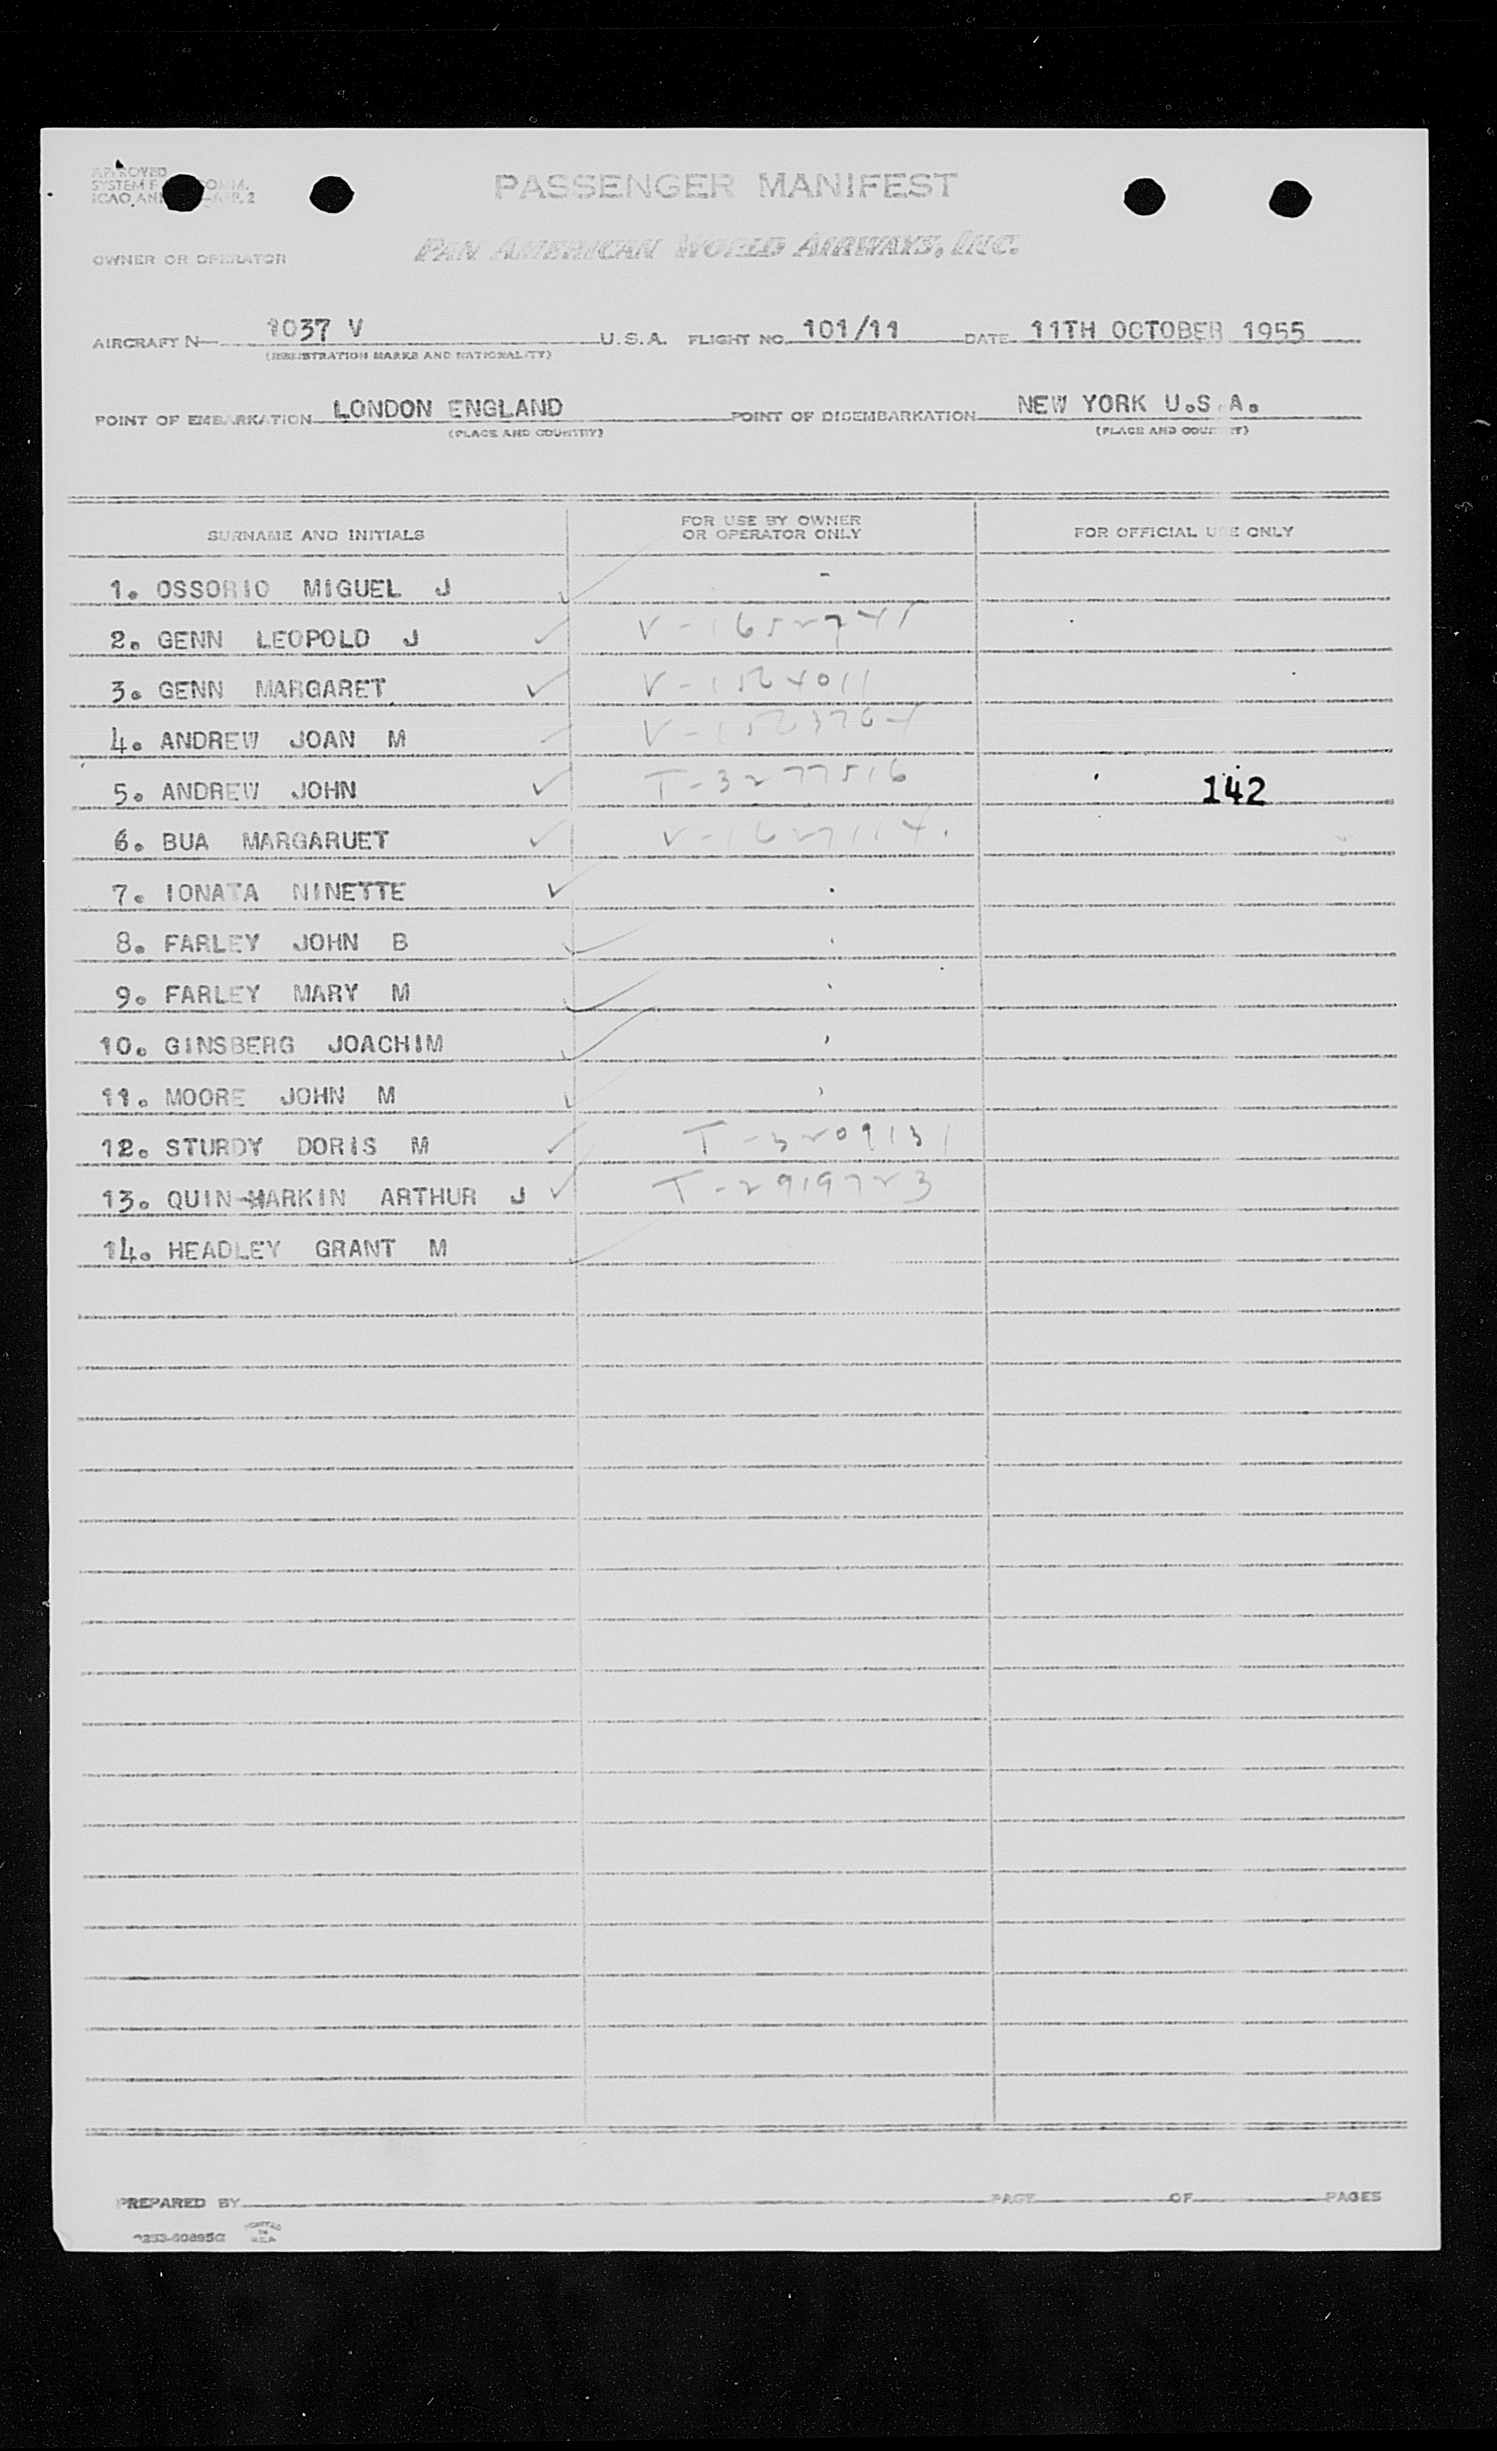 APPROVED
SYSTEM F COMM.
ICAO ANN APP. 2
PASSENGER MANIFEST
OWNER OR OPERATOR
PAN AMERICAN WORLD AIRWAYS, INC.
AIRCRAFT N 1037 V U.S.A. FLIGHT NO. 101/11 DATE 11TH OCTOBER 1955
(REGISTRATION MARKS AND NATIONALITY)
POINT OF EMBARKATION LONDON ENGLAND POINT OF DISEMBARKATION NEW YORK U.S.A.
(PLACE AND COUNTRY) (PLACE AND COUNTRY)
SURNAME AND INITIALS FOR USE BY OWNER OR OPERATOR ONLY FOR OFFICIAL USE ONLY
1. OSSORIO MIGUEL J
2. GENN LEOPOLD J V-1652741
3. GENN MARGARET V-1564011
4. ANDREW JOAN M V-1563764
5. ANDREW JOHN T-3277516 142
6. BUA MARGARUET V-1627114
7. IONATA NINETTE
8. FARLEY JOHN B
9. FARLEY MARY M
10. GINSBERG JOACHIM
11. MOORE JOHN M
12. STURDY DORIS M T-3209131
13. QUIN-HARKIN ARTHUR J T-2919723
14. HEADLEY GRANT M
PREPARED BY PAGE OF PAGES